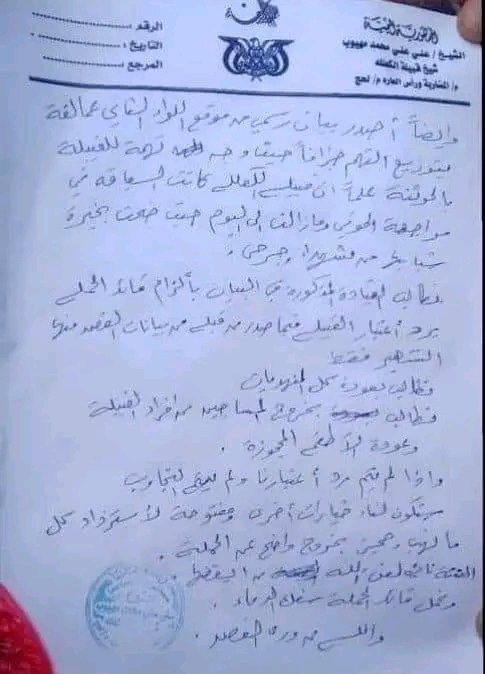 الجمهورية اليمنية
الشيخ / علي علي محمد مهيوب
شيخ قبيلة الكعلله
م/ المضاربة ورأس العاره م/ لحج
الرقم :
التاريخ :
المرجع :
وايضاً أصدر بيان رسمي من موقع اللواء الثاني عمالقة
بتوزيع التهم جزافاً حيث وجه تهمة للقبيلة
بالحوثنة علماً ان قبيلة الكعلل كانت السباقه في
مواجهة الحوثي ومازالت الى اليوم حيث ضحت بخيرة
شبابها من شهداء وجرحى .
نطالب القيادة المذكورة في البيان بألزام قائد الحملة
برد أعتبار القبيلة فيما صدر من قبله من بيانات القصد منها
التشهير فقط
نطالب بعودة كل المنهوبات
نطالب بخروج المساجين من افراد القبيلة
وعودة الأطقم المحجوزة .
واذا لم يتم رد أعتبارنا ولم يتم التجاوب
سيكون لنا خيارات أخرى ومفتوحة لأسترداد كل
ما نهب بخروج واضح عن الحملة .
الفتنة نائمة لعن الله من ايقظها
وتحمل قائد الحملة سفك الدماء .
والله من وراء القصد .